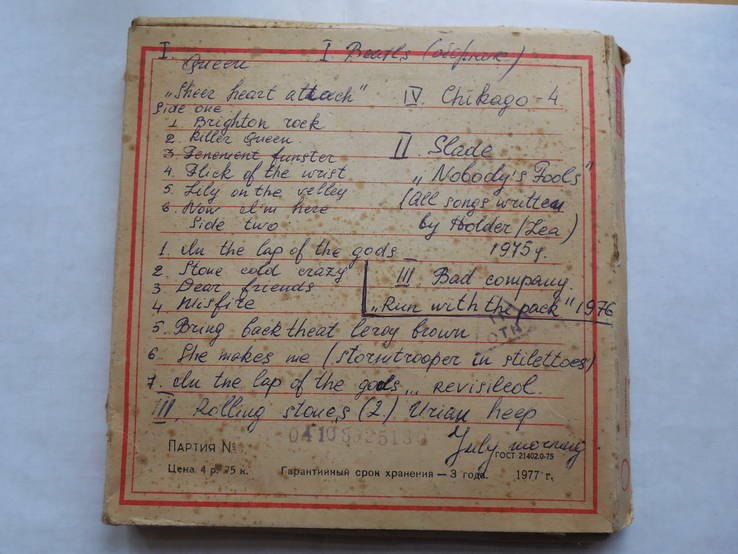 I. I Beatls (сборник)
Queen
„Sheer heart attach" IV. Chikago - 4
Side one
1. Brighton rock
2. Killer Queen II Slade
3. Tenement funster
4. Flick of the wrist „Nobody's Fools"
5. Lily on the velley (All songs written
6. Now I'm here by Holder/Lea)
Side two
1. In the lap of the gods 1975 г.
2. Stone cold crazy III Bad company.
3 Dear friends
4 Misfire „Run with the pack" 1976
5. Bring back theat leroy brown
6. She makes me (stormtrooper in stilettoes)
7. In the lap of the gods... revisited.
III Rolling stones (2.) Urian heep
July morning
Партия №
ГОСТ 21402.0-75
Цена 4 р. 75 к. Гарантийный срок хранения — 3 года. 1977 г.